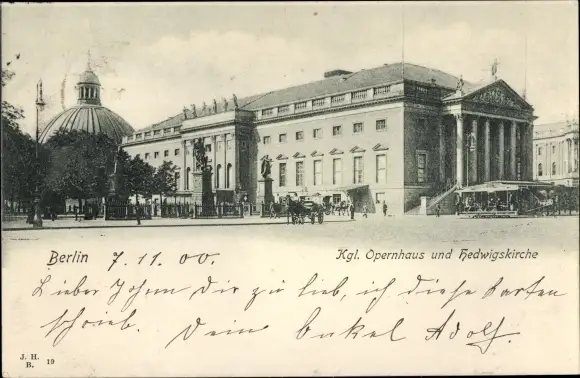 Berlin 7.11.00. Kgl. Opernhaus und Hedwigskirche
Lieber Johem Dir zu lieb, ich diese Karten
schrieb. Dein Onkel Adolf
J. H.
B. 19